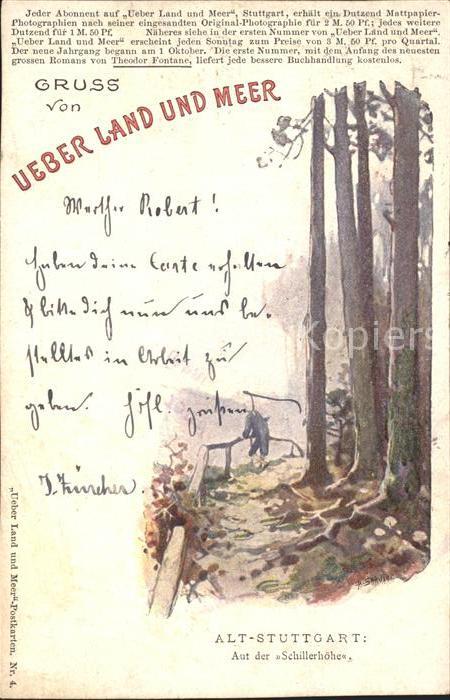 Jeder Abonnent auf „Ueber Land und Meer“, Stuttgart, erhält ein Dutzend Mattpapier-
Photographien nach seiner eingesandten Original-Photographie für 2 M. 50 Pf.; jedes weitere
Dutzend für 1 M. 50 Pf. Näheres siehe in der ersten Nummer von „Ueber Land und Meer“.
„Ueber Land und Meer“ erscheint jeden Sonntag zum Preise von 3 M. 50 Pf. pro Quartal.
Der neue Jahrgang begann am 1. Oktober. Die erste Nummer, mit dem Anfang des neuesten
grossen Romans von Theodor Fontane, liefert jede bessere Buchhandlung kostenlos.
GRUSS
von
UEBER LAND UND MEER
Werther Robert!
Haben deine Carte erhalten
& bitte dich nun uns be-
stelltes in Arbeit zu
geben. Höfl. grüßen
J. Zürcher.
Kopiers
ALT-STUTTGART:
Auf der »Schillerhöhe«.
„Ueber Land und Meer“-Postkarten. Nr. 4.